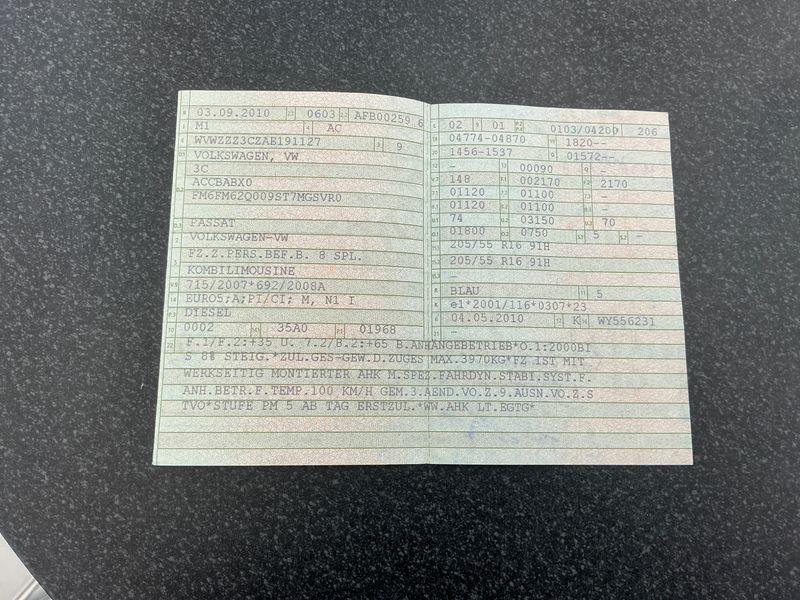 03.09.2010 0603 AFB00259 6
M1 AC
WVWZZZ3CZAE191127 9
VOLKSWAGEN, VW
3C
ACCBABX0
FM6FM62Q009ST7MGSVR0
PASSAT
VOLKSWAGEN-VW
FZ.Z.PERS.BEF.B. 8 SPL.
KOMBILIMOUSINE
715/2007*692/2008A
EURO5;A;PI/CI; M, N1 I
DIESEL
0002 35A0 01968
02 01 0103/04200 206
04774-04870 1820--
1456-1537 01572--
- 00090 -
148 002170 2170
01120 01100 -
01120 01100 -
74 03150 70
01800 0750 5 -
205/55 R16 91H
205/55 R16 91H
-
BLAU 5
e1*2001/116*0307*23
04.05.2010 K WY556231
-
F.1/F.2:+35 U. 7.2/B.2:+65 B.ANHÄNGEBETRIEB*O.1:2000BI
S 8% STEIG.*ZUL.GES-GEW.D.ZUGES MAX.3970KG*FZ IST MIT
WERKSEITIG MONTIERTER AHK M.SPEZ.FAHRDYN.STABI.SYST.F.
ANH.BETR.F.TEMP.100 KM/H GEM.3.AEND.VO.Z.9.AUSN.VO.Z.S
TVO*STUFE PM 5 AB TAG ERSTZUL.*WW.AHK LT.EGTG*